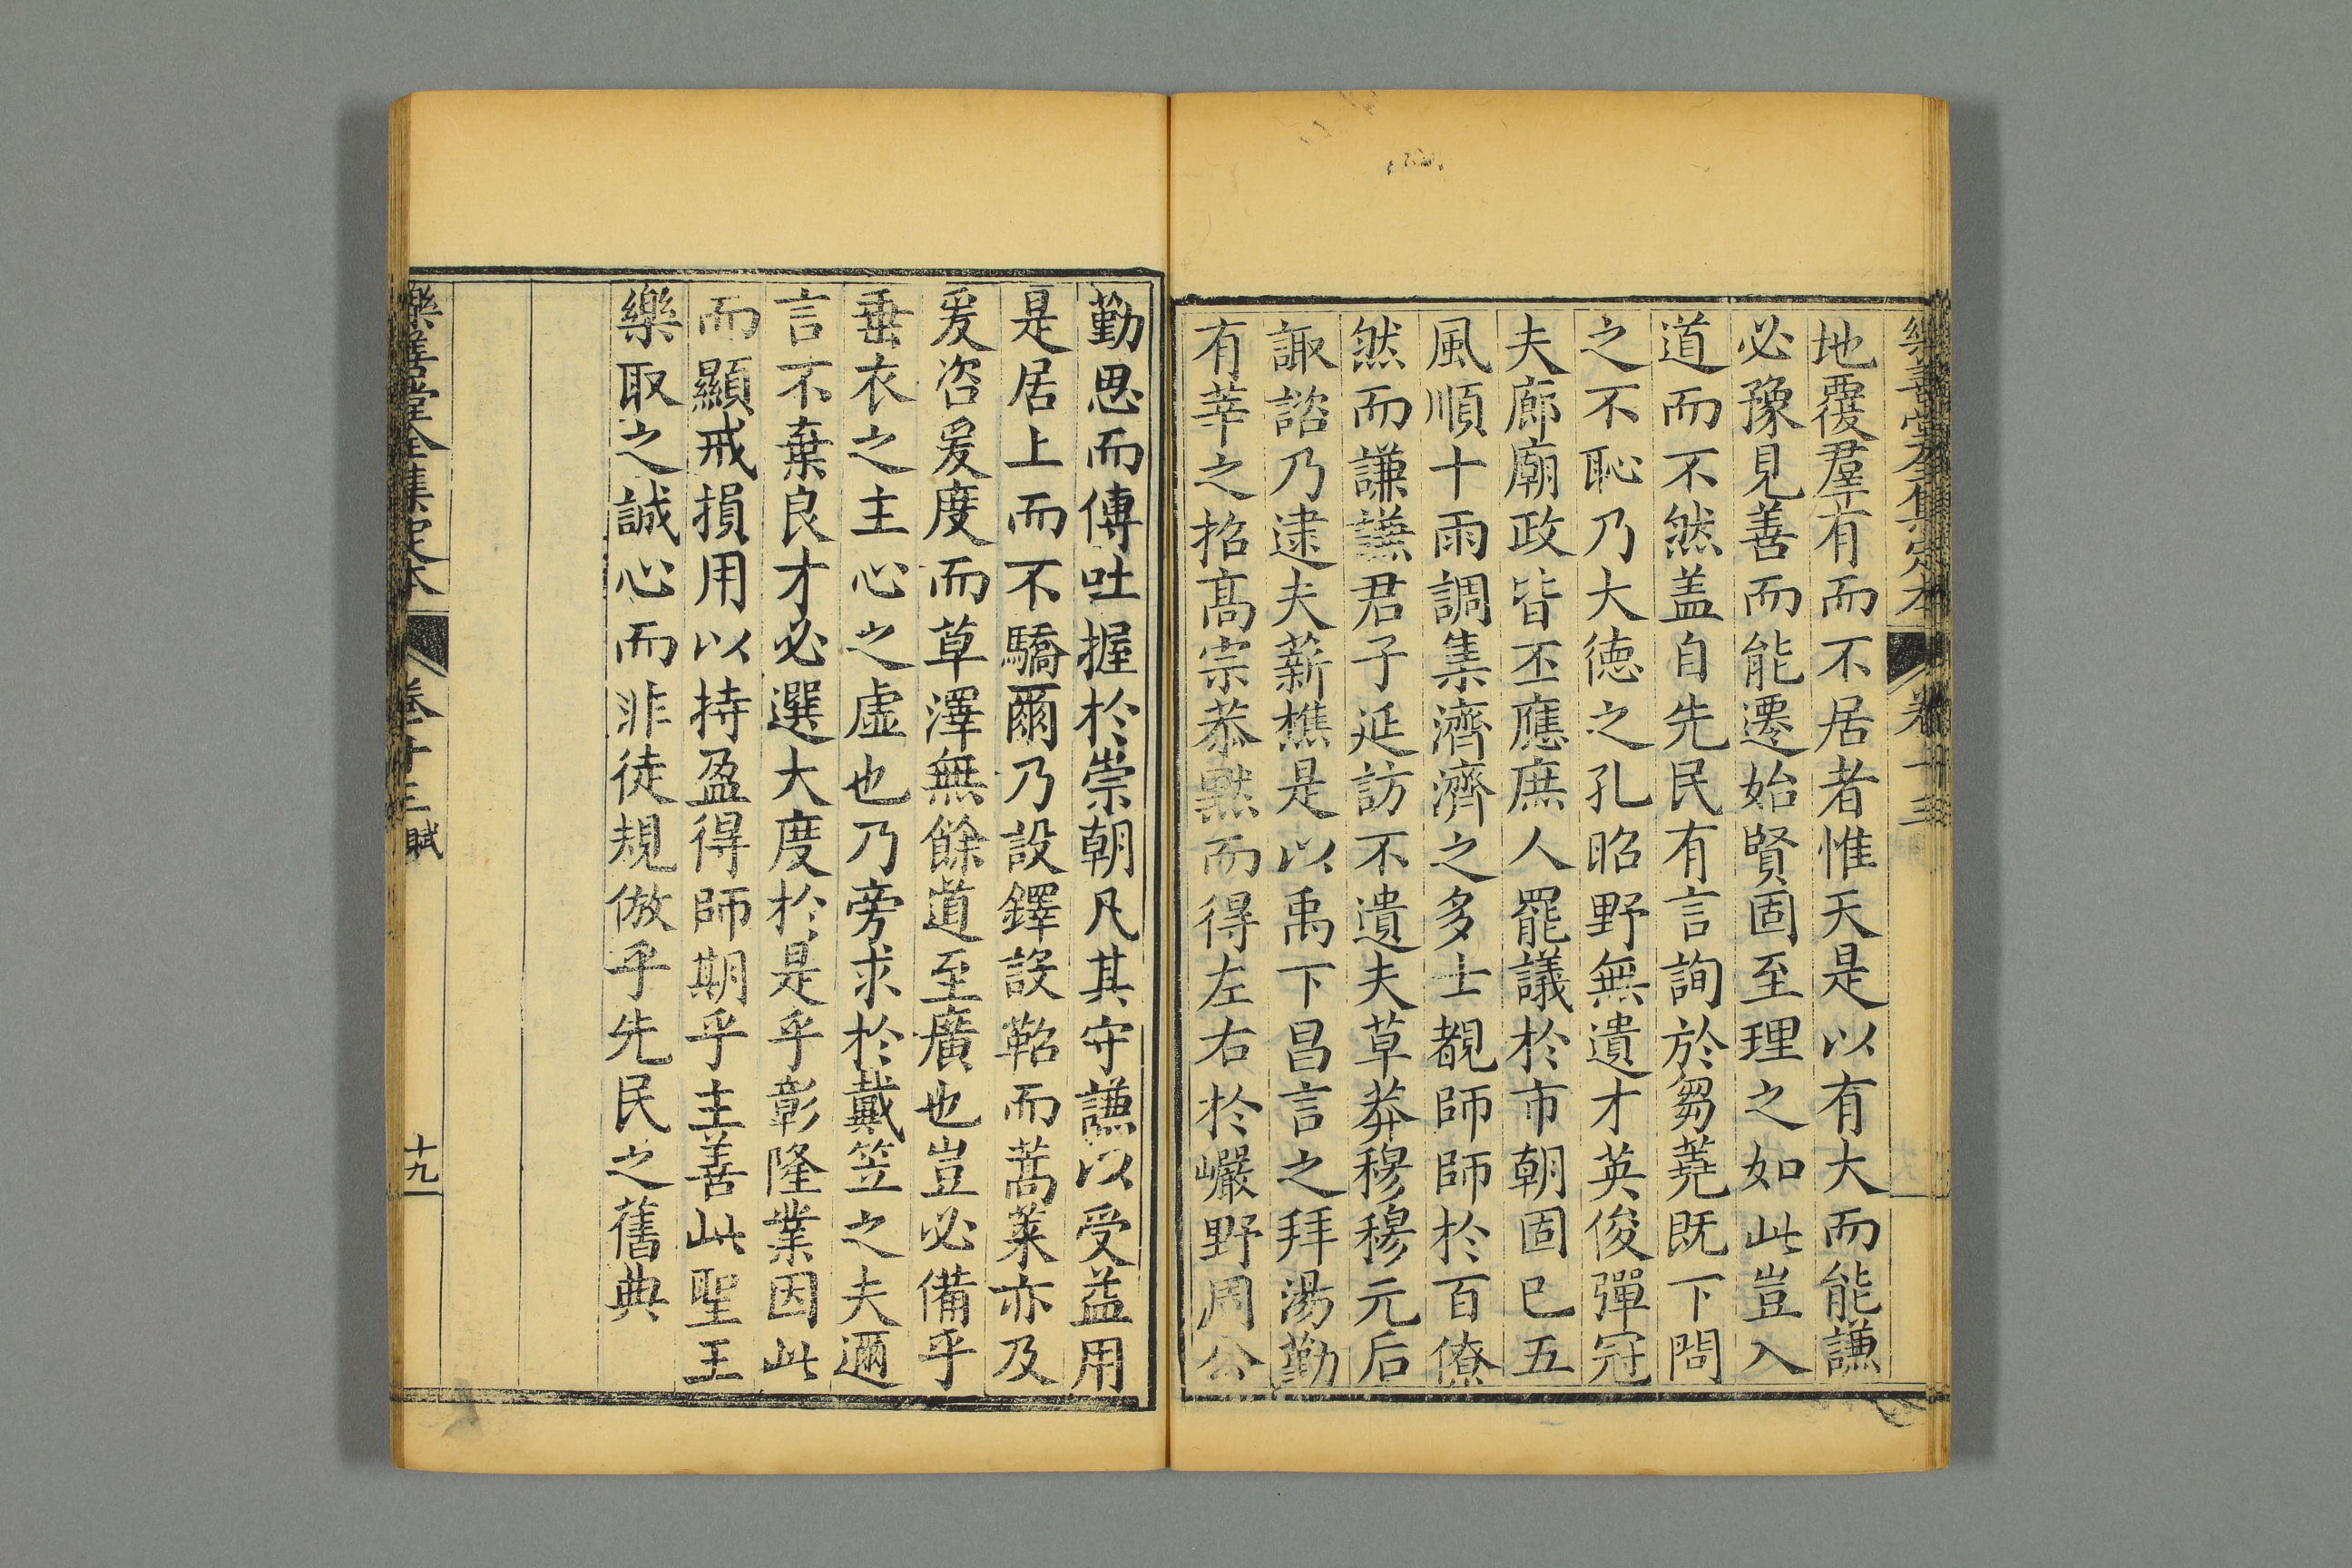 樂善堂全集定本 卷十三
地覆羣有而不居者惟天是以有大而能謙
必豫見善而能遷始賢固至理之如此豈入
道而不然盖自先民有言詢於芻蕘既下問
之不恥乃大德之孔昭野無遺才英俊彈冠
夫廊廟政皆丕應庶人罷議於市朝固已五
風順十雨調集濟濟之多士覩師師於百僚
然而謙謙君子延訪不遺夫草莽穆穆元后
諏諮乃逮夫薪樵是以禹下昌言之拜湯勤
有莘之招高宗恭黙而得左右於巖野周公
勤思而傳吐握於崇朝凡其守謙以受益用
是居上而不驕爾乃設鐸設鞀而蒿萊亦及
爰咨爰度而草澤無餘道至廣也豈必備乎
垂衣之主心之虛也乃旁求於戴笠之夫邇
言不棄良才必選大度於是乎彰隆業因此
而顯戒損用以持盈得師期乎主善此聖王
樂取之誠心而非徒規倣乎先民之舊典
樂善堂全集定本 卷十三 賦 十九